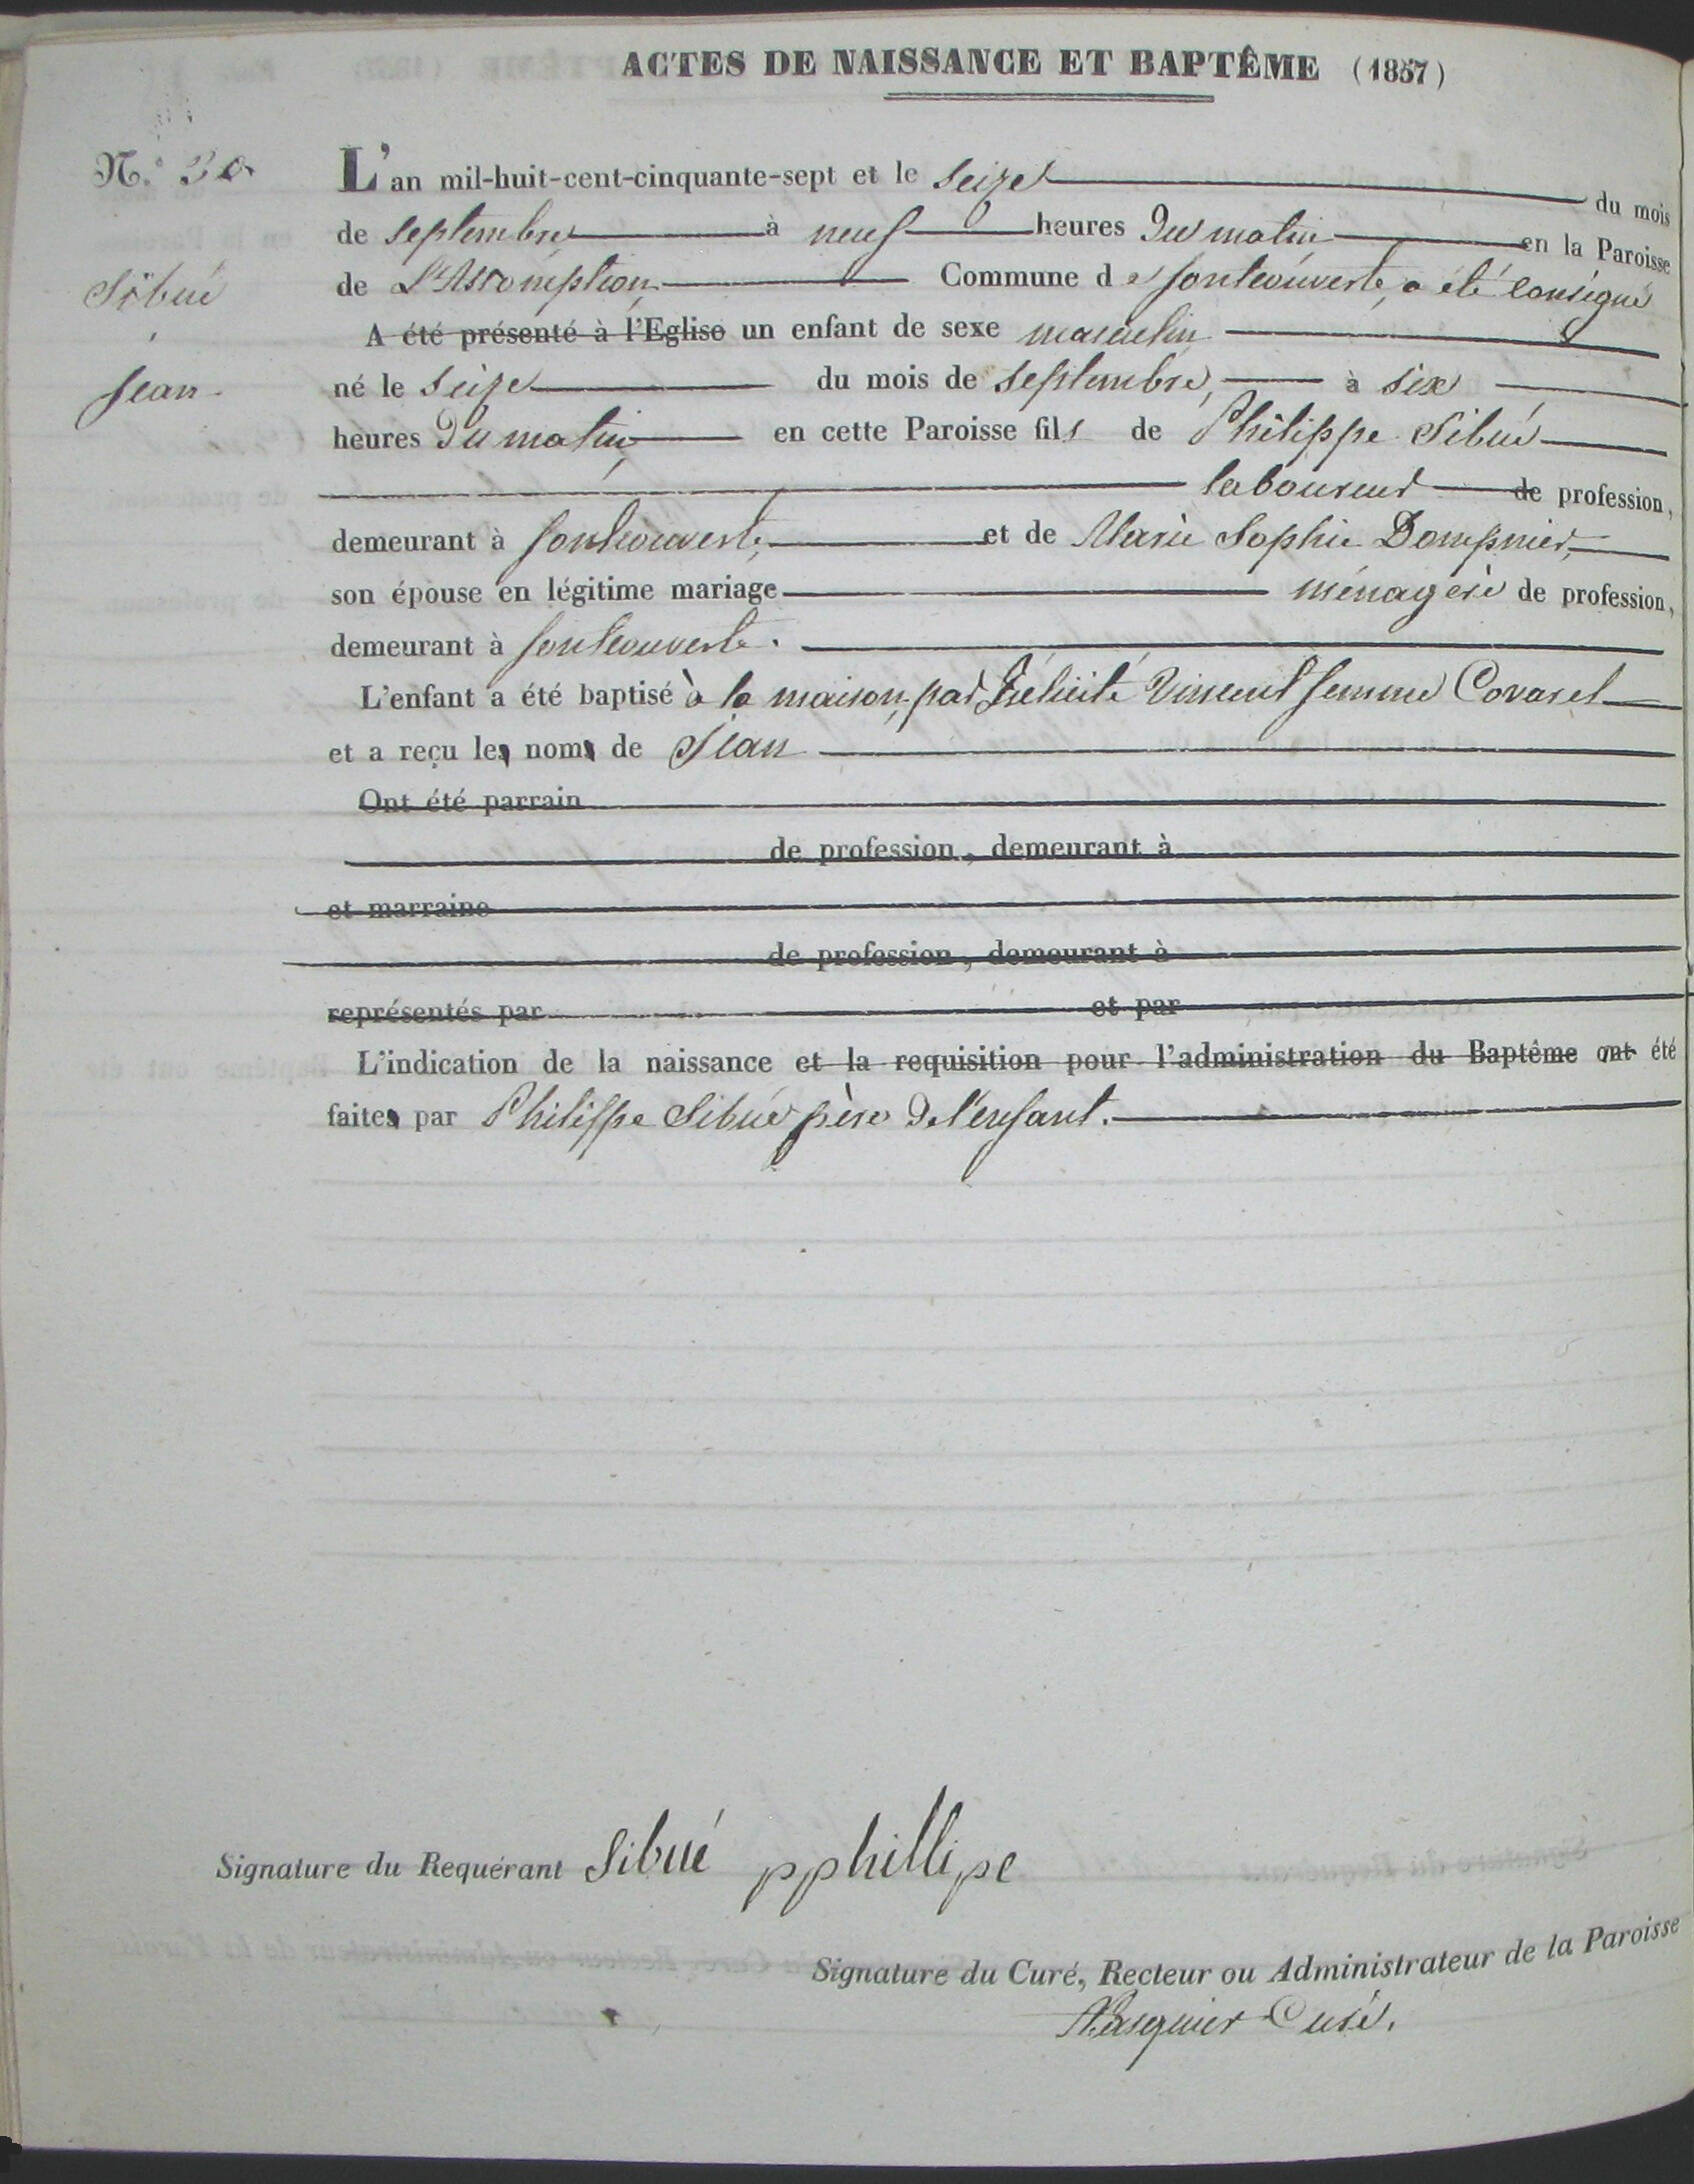 ACTES DE NAISSANCE ET BAPTÊME (1857)
N.º 30
L'an mil-huit-cent-cinquante-sept et le seize du mois
de septembre à neuf heures du matin en la Paroisse
Sibué
de L'Assomption Commune de fontcouverte, a été consigné
A été présenté à l'Eglise un enfant de sexe masculin
Jean
né le seize du mois de septembre, à six
heures du matin, en cette Paroisse fils de Philippe Sibué
laboureur de profession,
demeurant à fontcouverte, et de Marie Sophie Dompnier,
son épouse en légitime mariage ménagère de profession,
demeurant à fontcouverte.
L'enfant a été baptisé à la maison, par Félicité Vincent femme Covarel
et a reçu les noms de Jean
Ont été parrain
de profession, demeurant à
et marraine
de profession, demeurant à
représentés par et par
L'indication de la naissance et la requisition pour l'administration du Baptême ont été
faites par Philippe Sibué père de l'enfant.
Signature du Requérant Sibué pphillipe
Signature du Curé, Recteur ou Administrateur de la Paroisse
Curé.